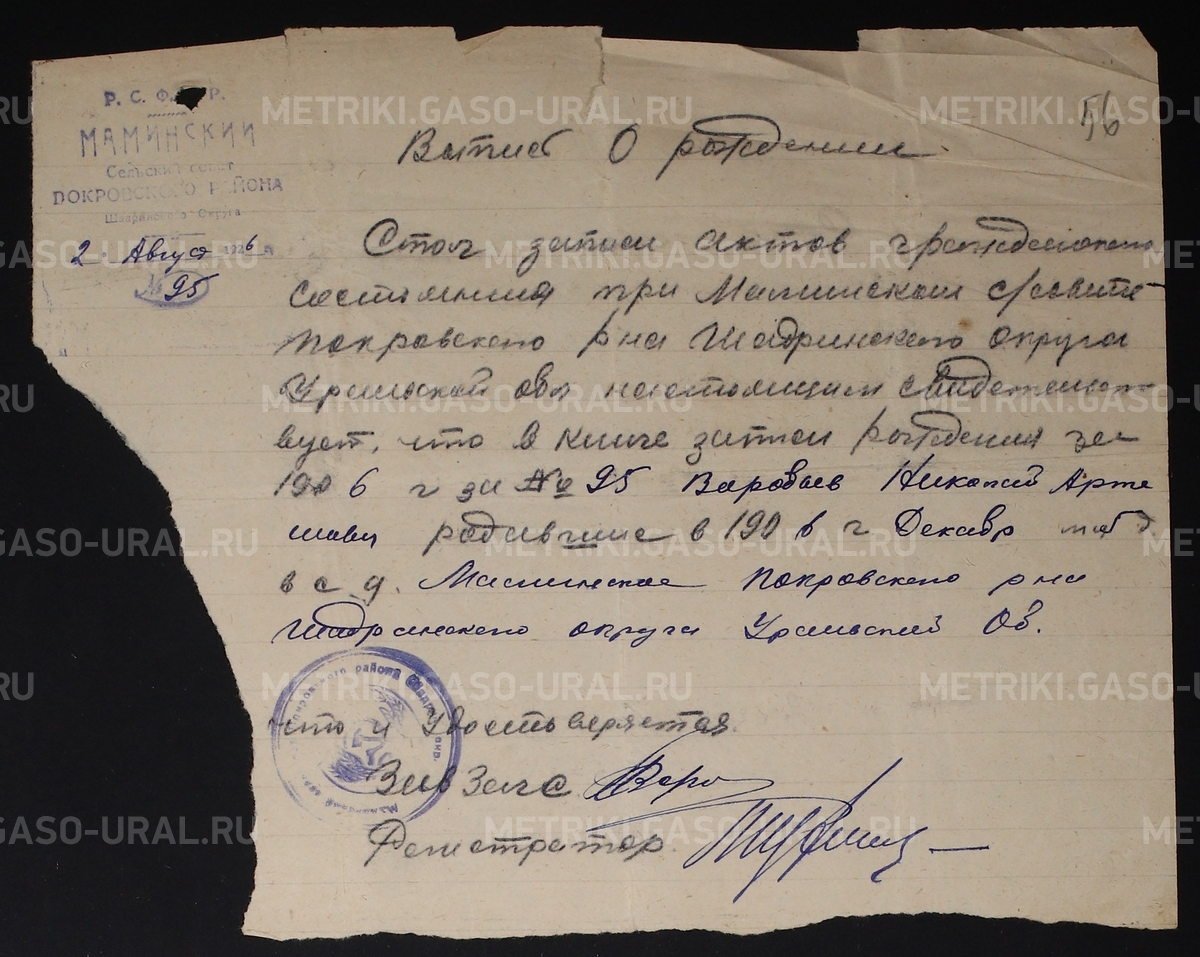 Р. С. Ф. С. Р.
МАМИНСКИЙ
Сельский совет
ПОКРОВСКОГО РАЙОНА
Шадринского Округа
2 Август 1926 г.
№ 95
56
Выпис О рождении
Стол записи актов гражданского
состояния при Маминском с/совите
Покровского рна Шадринского округа
Уральской обл настоящим свидетельст
вует, что в книге записи рождения за
1906 г за № 95 Воробьев Николай Арте
мович родившие в 1906 г Декабр
в с. д. Маминское Покровского рна
Шадринского округа Уральский Об.
что и удостоверяется
Зав Загс
Регистратор
METRIKI.GASO-URAL.RU